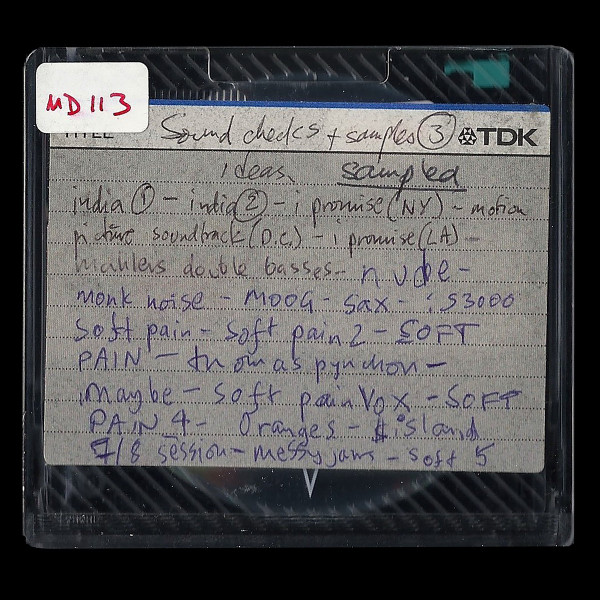 MD 113
TITLE Sound checks + samples ③ TDK
ideas. sampled
india ① - india ② - i promise (NY) - motion
picture soundtrack (D.C.) - i promise (LA) -
mahlers double basses - nude -
monk noise - MOOG - sax - : S3000
soft pain - soft pain 2 - SOFT
PAIN - thomas pynchon -
maybe - soft pain Vox - SOFT
PAIN 4 - Oranges - island
7/8 session - messy jams - soft 5